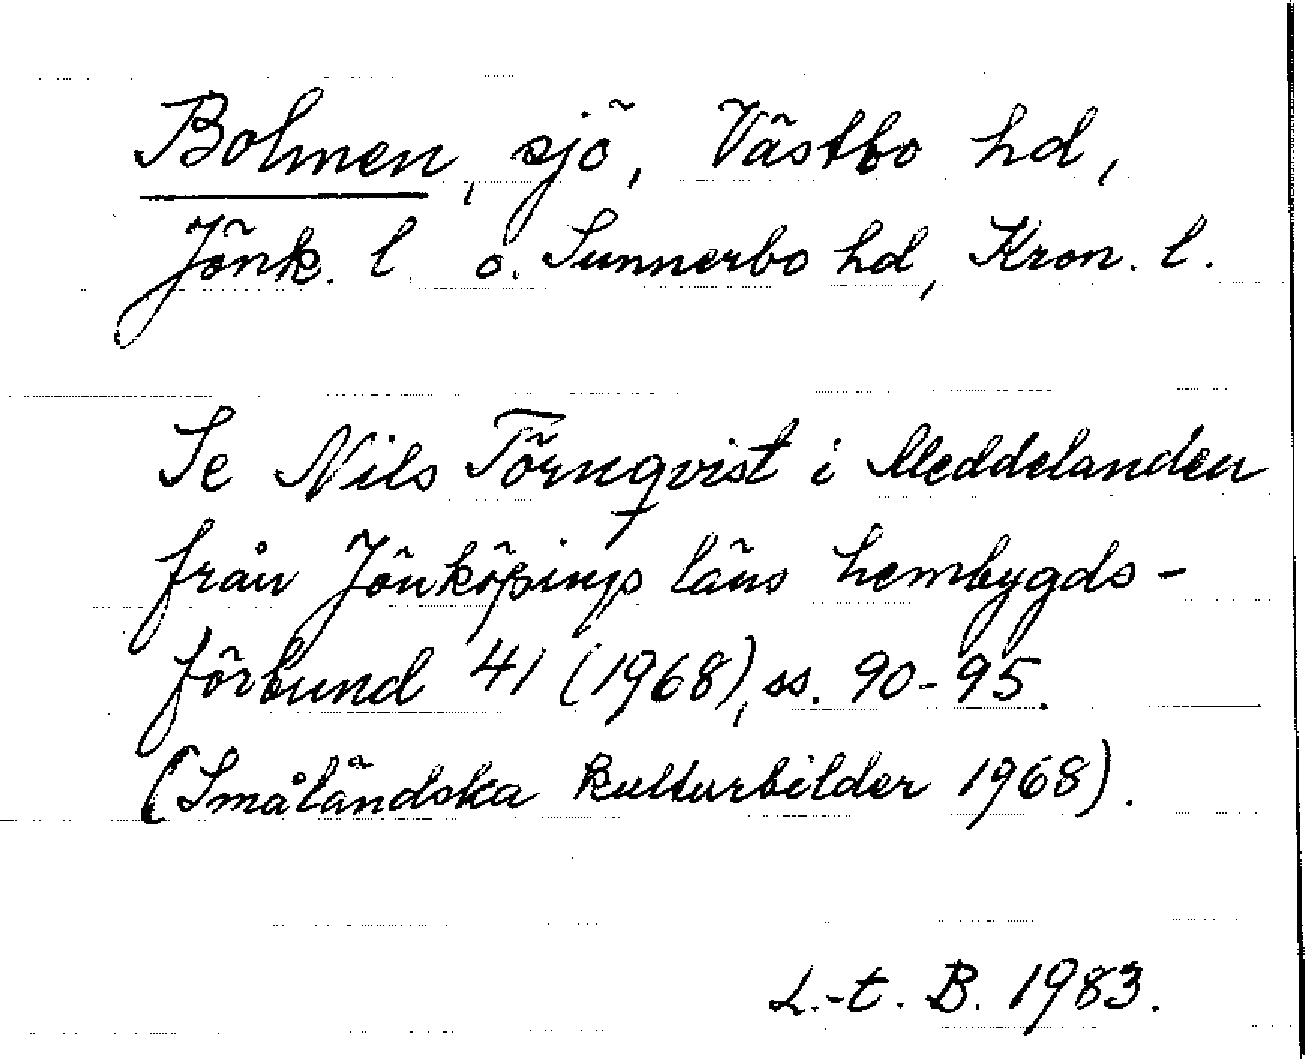 Bolmen, sjö, Västbo hd,
Jönk. l. o. Sunnerbo hd, Kron. l.
Se Nils Törnqvist i Meddelanden
från Jönköpings läns hembygds-
förbund 41 (1968), ss. 90-95.
(Småländska kulturbilder 1968).
L.-t. B. 1983.